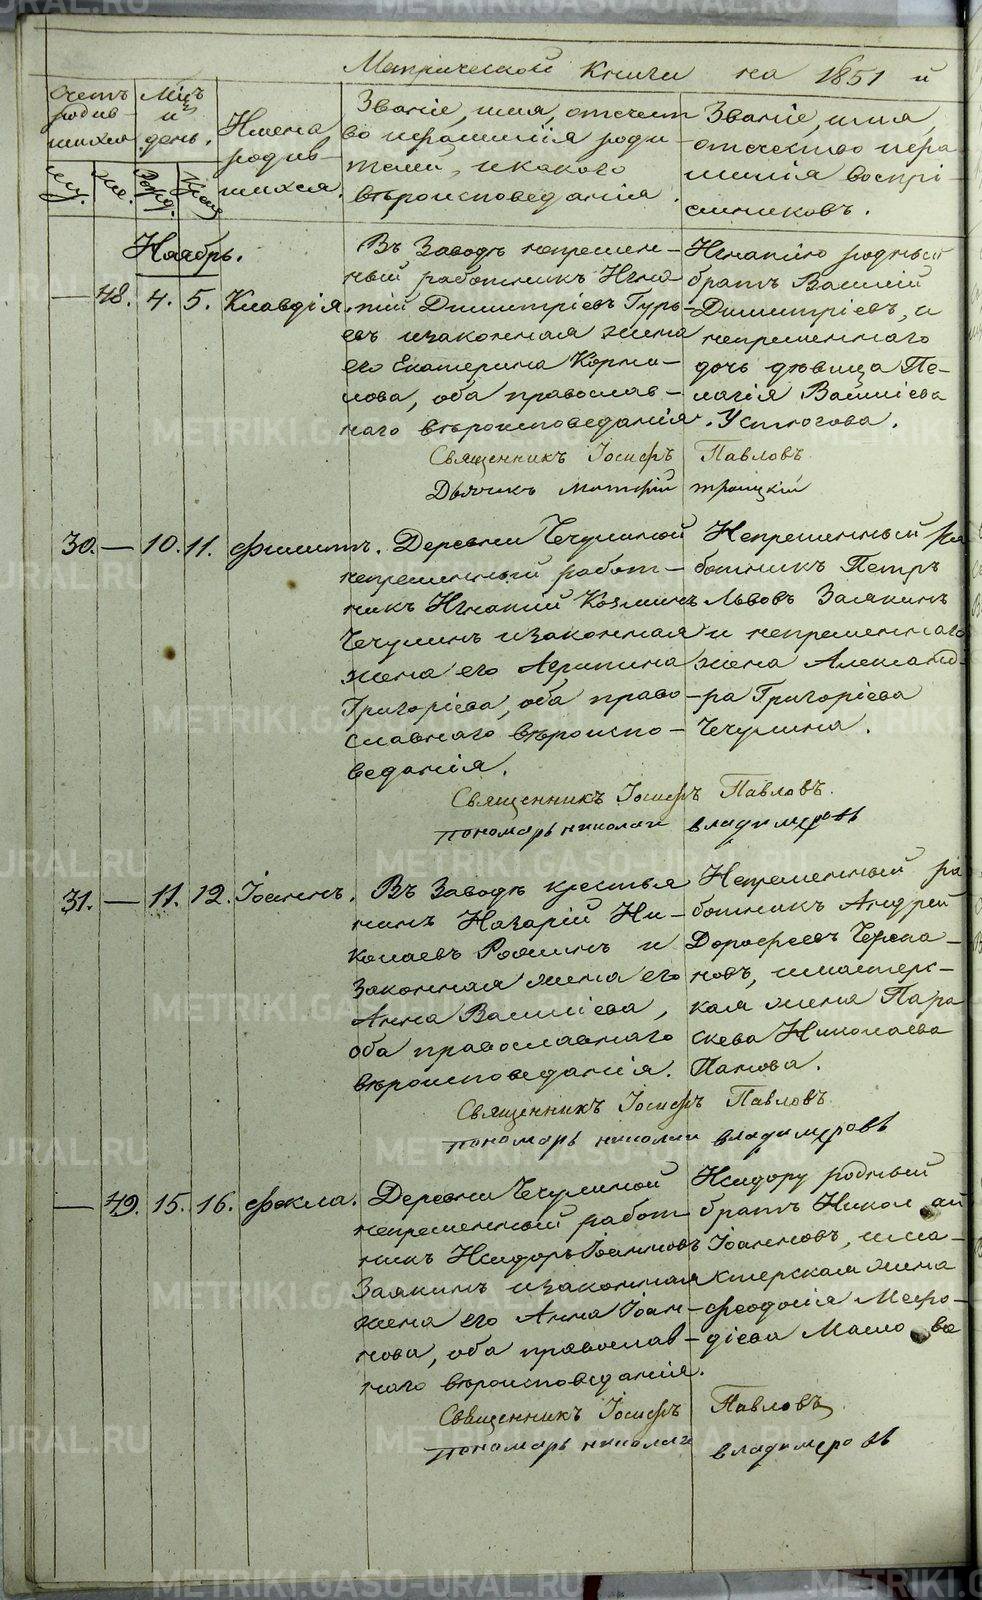 Метрической книги на 1851 й
Счетъ родив-шихся
Мцъ и день.
Имена родив-шихся.
Званіе, имя, отчест-
во и фамилія роди-
телей, и какого
вѣроисповеданія.
Званіе, имя,
отчество и фа-
милія воспрі-
емниковъ.
Му. Же. Рожд. Крещ.
Ноябрь.
— 48. 4. 5. Клавдія.
Въ Заводѣ непремен-
ный работникъ Игна-
тий Димитріевъ Гурь-
евъ и законная жена
его Екатерина Корни-
лова, оба православ-
наго вѣроисповеданія.
Игнатію родный
братъ Василій
Димитріевъ, и
непременнаго
дочь дѣвица Пе-
лагія Василіева
Устюгова.
Священникъ Іосифъ Павловъ
Дьячикъ Матфій Троицкій
30. — 10. 11. Филиппъ.
Деревни Чечулиной
непременный работ-
никъ Игнатий Козминъ
Чечулинъ и законная
жена его Агрипина
Григоріева, оба право-
славнаго вѣроиспо-
веданія.
Непременный ра-
ботникъ Петръ
Львовъ Заякинъ
и непременнаго
жена Александ-
ра Григоріева
Чечулина.
Священникъ Іосифъ Павловъ.
пономарь николаи владимеровъ
31. — 11. 12. Іоаннъ.
Въ Заводѣ крестья
нинъ Назарій Ни-
колаевъ Роминъ и
Законная жена его
Анна Василіева,
оба православнаго
вѣроисповеданія.
Непременный ра
ботникъ Андрей
Дорофеевъ Черепа-
новъ, и мастерс-
кая жена Пара
скева Николаева
Панова.
Священникъ Іосифъ Павловъ.
пономарь николаи владимеровъ
— 49. 15. 16. Фекла.
Деревни Чечулиной
непременный работ-
никъ Исидоръ Іоанновъ
Заякинъ и законная
жена его Анна Іоан-
нова, оба православ-
наго вѣроисповеданія.
Исидору родный
братъ Николай
Іоанновъ, и ма-
стерская жена
Феодосія Мефо-
діева
Священникъ Іосифъ Павловъ
пономарь николаи владимеровъ
METRIKI.GASO-URAL.RU